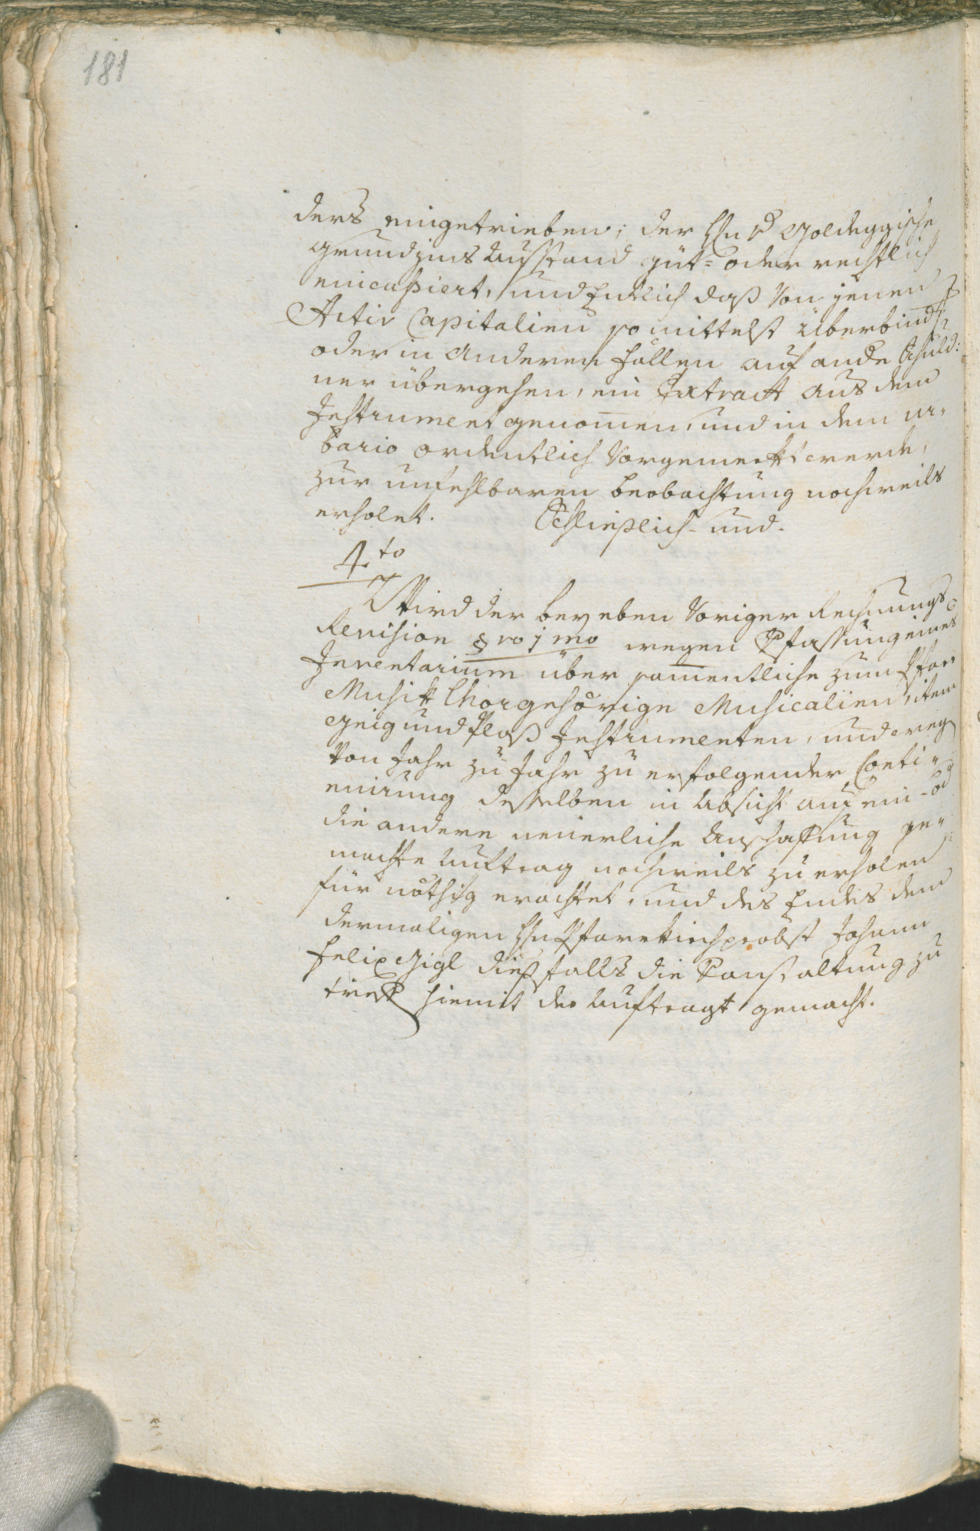 181
ders eingetrieben; der Hn v Goldeggische
Grundzins Ausstand güt= oder rechtlich
eincassiert, und endlich daß von jenen
Activ Capitalien so mittelst Überbind
oder in anderen fällen auf ande Schuld:
ner übergehen, ein Extract aus dem
Instrument genomen, und in dem ur=
bario ordentlich vorgemerkt werde,
zur unfehlbaren beobachtung nochmals
erholet. Schlieslich und
4to
Wird der bey eben voriger Rechnungs
Revision pro imo wegen Vfassung eines
Inventarium über samentliche zum Pfarr
Musik Chor gehörige Musicalien, item
Geig und Plas Instrumenten, und weg
von Jahr zu Jahr zu erfolgender Conti=
nuirung desselben in Absicht auf ein= od
die andere neuerliche Anschaffung ge=
machte Auftrag nochmals zu erholen
für nöthig erachtet, und des Endes dem
dermaligen Hn Pfarrkirchprobst Johann
Felix Gigl diesfalls die Vanstaltung zu
hiemit der Auftragt gemacht.